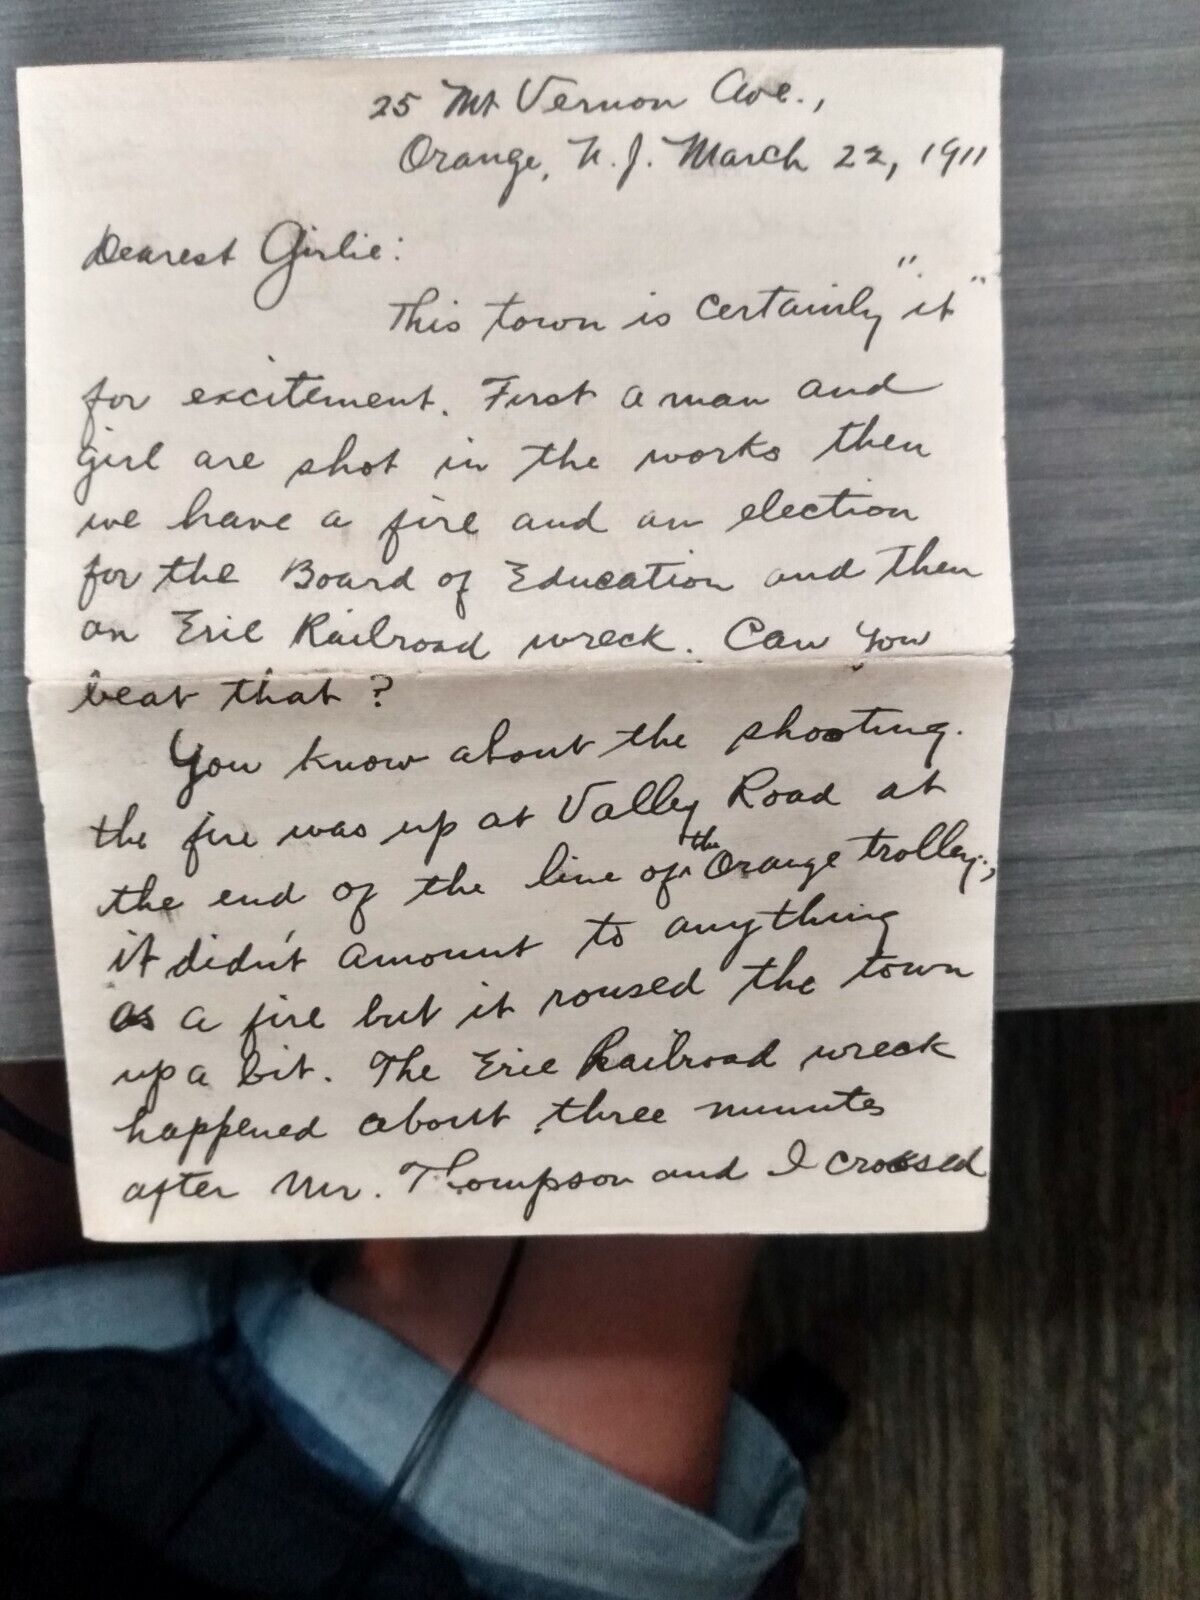 25 Mt Vernon Ave.,
Orange, N. J. March 22, 1911
Dearest Girlie:
This town is certainly "it"
for excitement. First a man and
girl are shot in the works then
we have a fire and an election
for the Board of Education and then
an Erie Railroad wreck. Can you
beat that?
You know about the shooting.
the fire was up at Valley Road at
the end of the line of the Orange trolley.,
it didn't amount to anything
as a fire but it roused the town
up a bit. The Erie Railroad wreck
happened about three minutes
after Mr. Thompson and I crossed